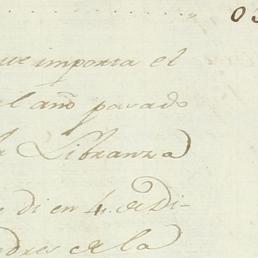 03
que importa el
el año pasado
la Libranza
di en 4. de Di-
dres de la